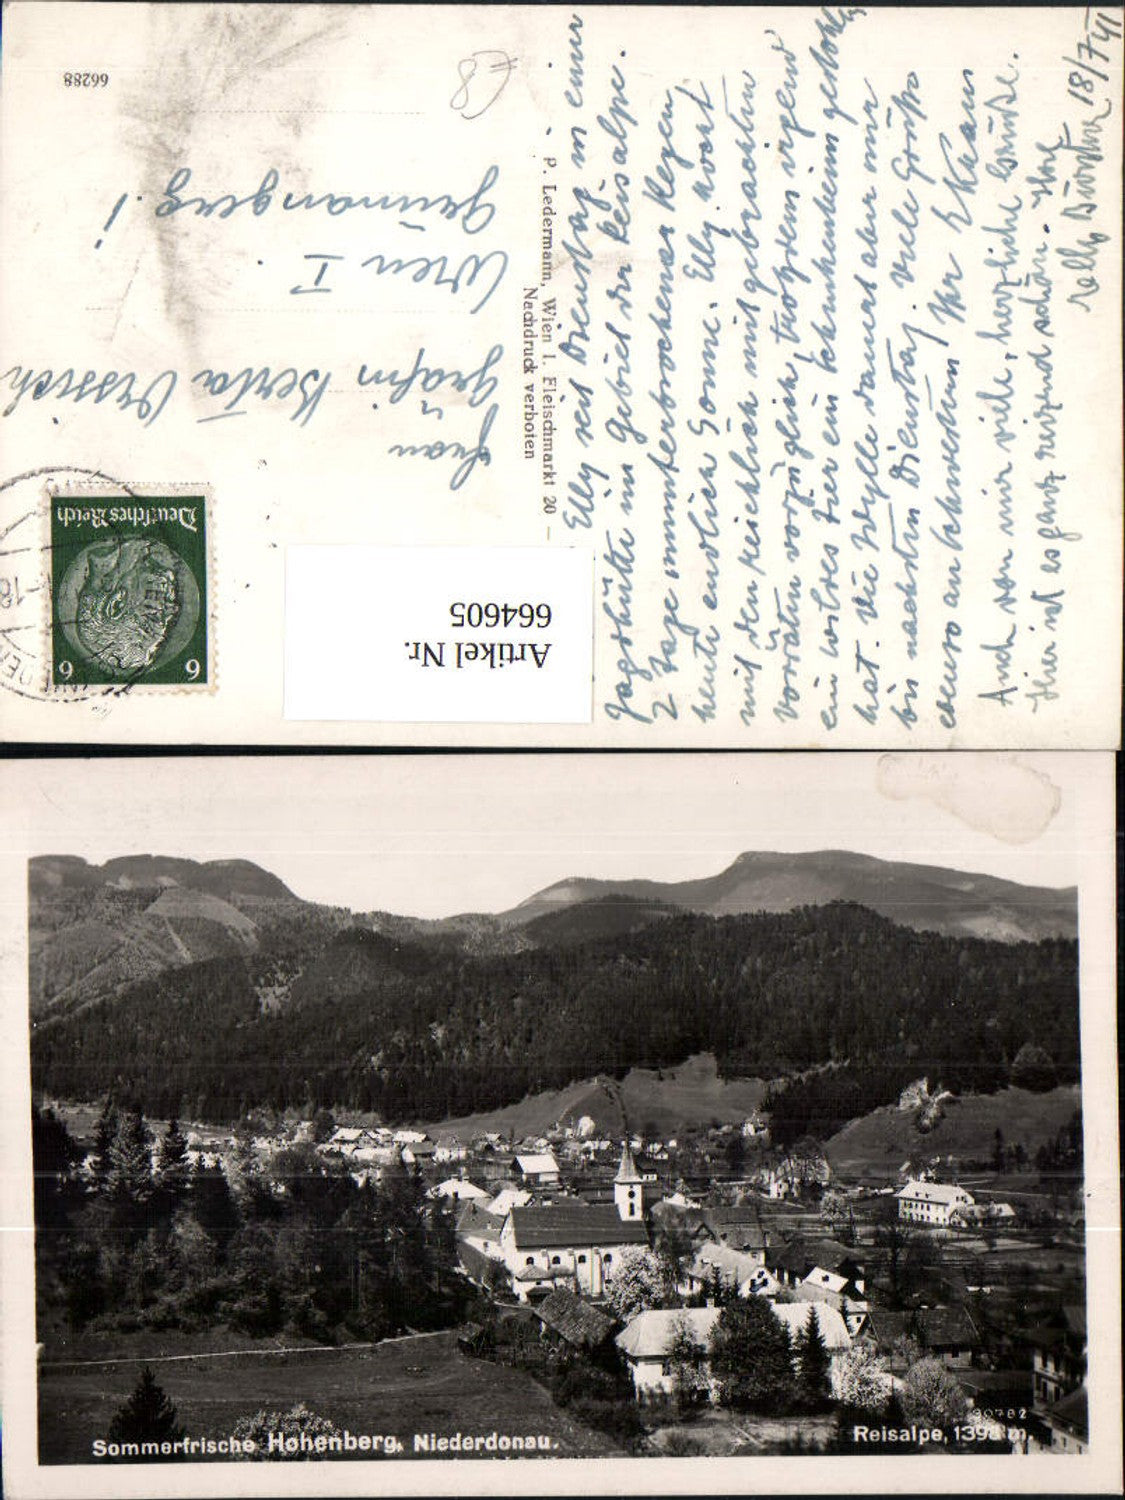 66288
P. Ledermann, Wien I. Fleischmarkt 20
Nachdruck verboten
Frau
Gräfin Berta Orssich
Wien I.
Grünangerg. 1
Deutsches Reich
6 6
Artikel Nr.
664605
Elly seit Dienstag in einer
Jagdhütte im Gebiet der Reisalpe.
2 Tage ununterbrochener Regen
heute endlich Sonne. Elly kocht
mit den reichlich mitgebrachten
Vorräten vorzüglich, trotzdem irgend
ein wildes Tier ein Schunkenbein gestohlen
hat. Die Idylle dauert aber nur
bis nächsten Dienstag. Viele Grüße
ebenso an Schwestern Ihr
Auch von mir viele, herzliche Grüße.
Hier ist es ganz reizend schön. Ihre
18/7 41
Sommerfrische Hohenberg, Niederdonau.
90782
Reisalpe, 1398 m.